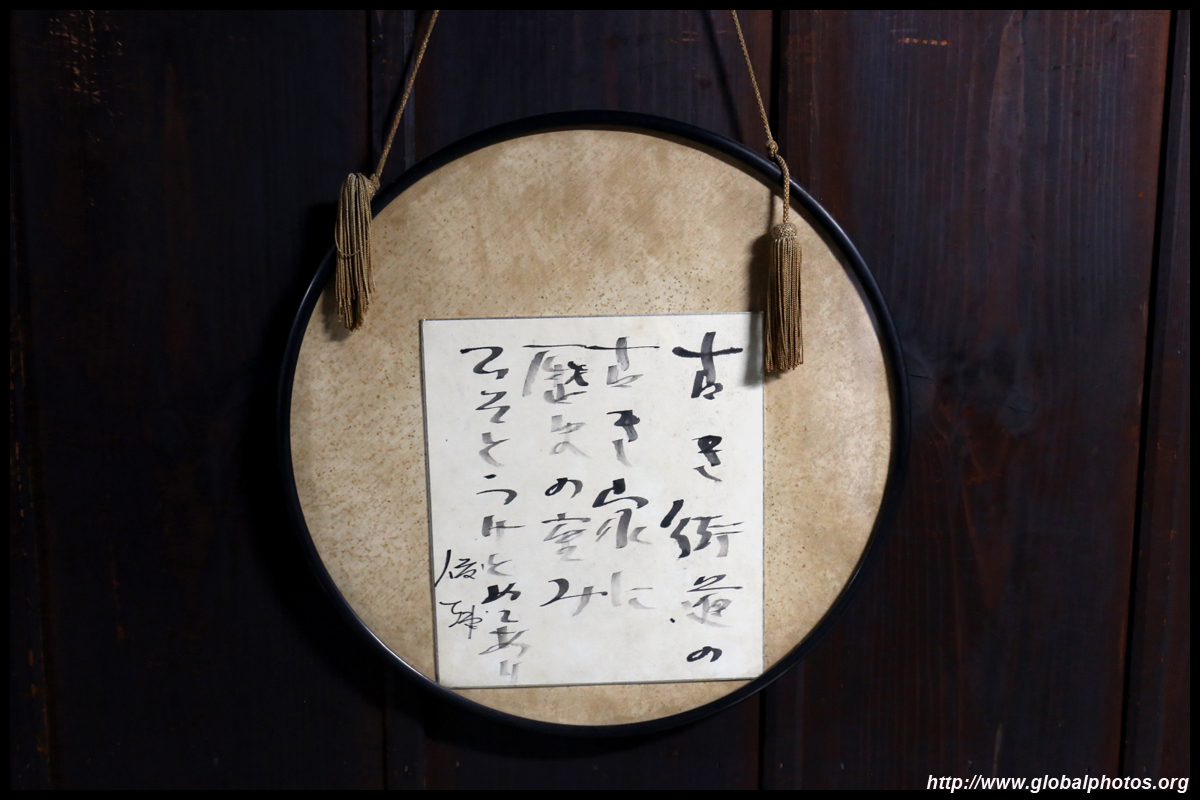 古き街道の
古き家に
歴史の重み
ひそとうけとめてあり
http://www.globalphotos.org